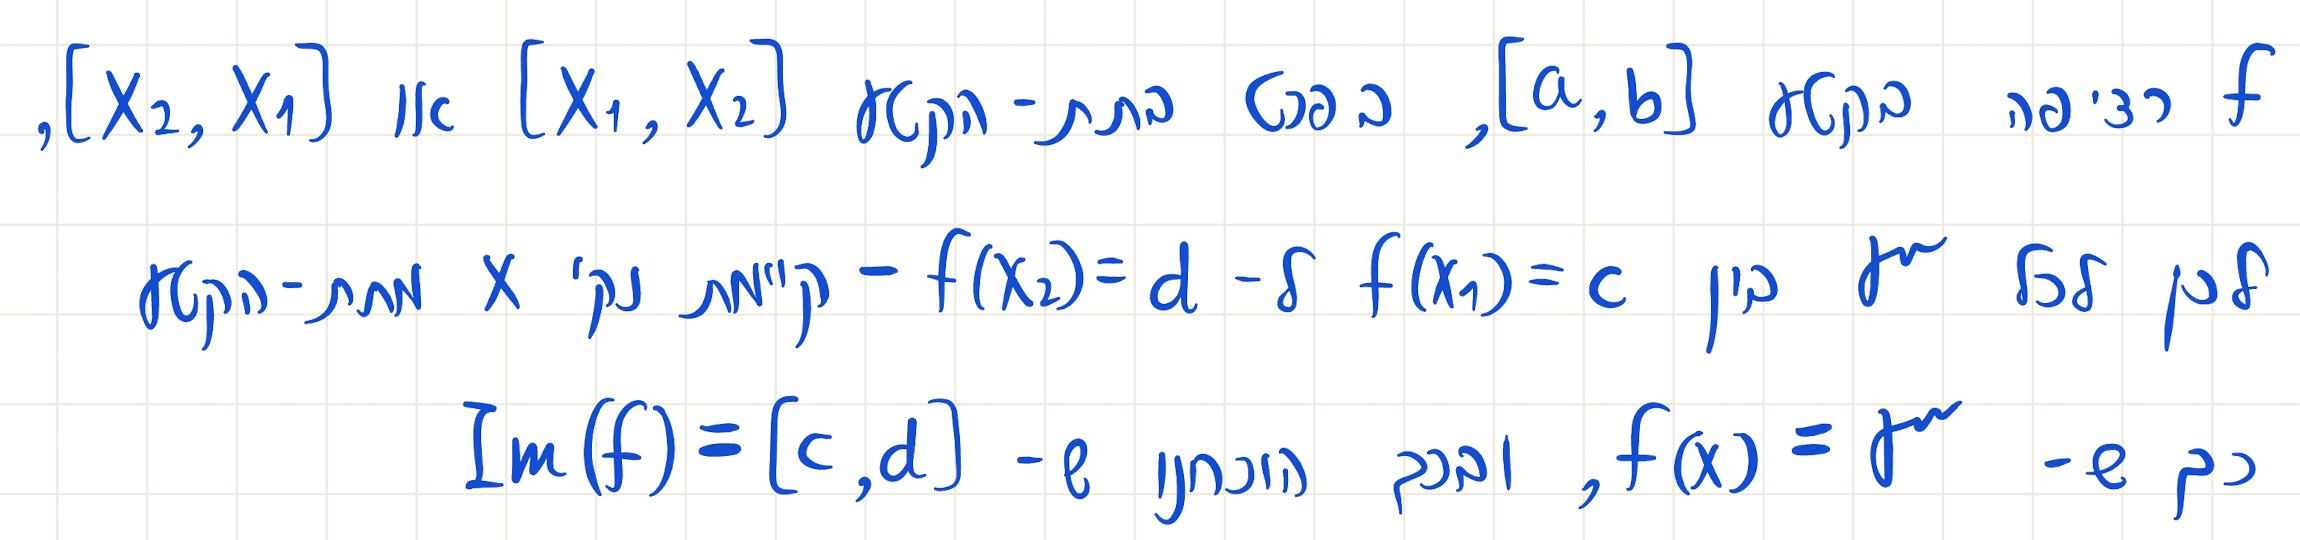 f רציפה בקטע [a,b], בפרט בתת-הקטע [x₁,x₂] או [x₂,x₁],
לכן לכל γ בין f(x₁)=c ל-f(x₂)=d - קיימת נק' x מתת-הקטע
כך ש- f(x)=γ, ובכך הוכחנו ש- Im(f)=[c,d]